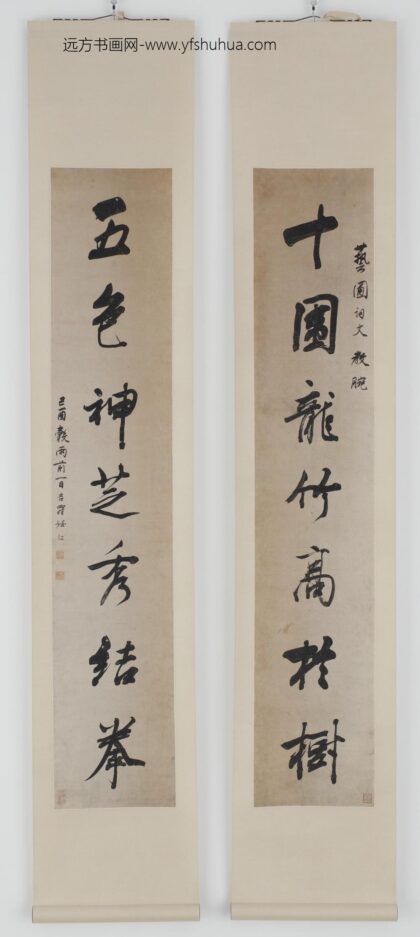 远方书画网-www.yfshuhua.com
藝 詞丈 教腕
十圍龍竹高於樹
五色神芝秀結拳
己酉穀雨前一日吉羅